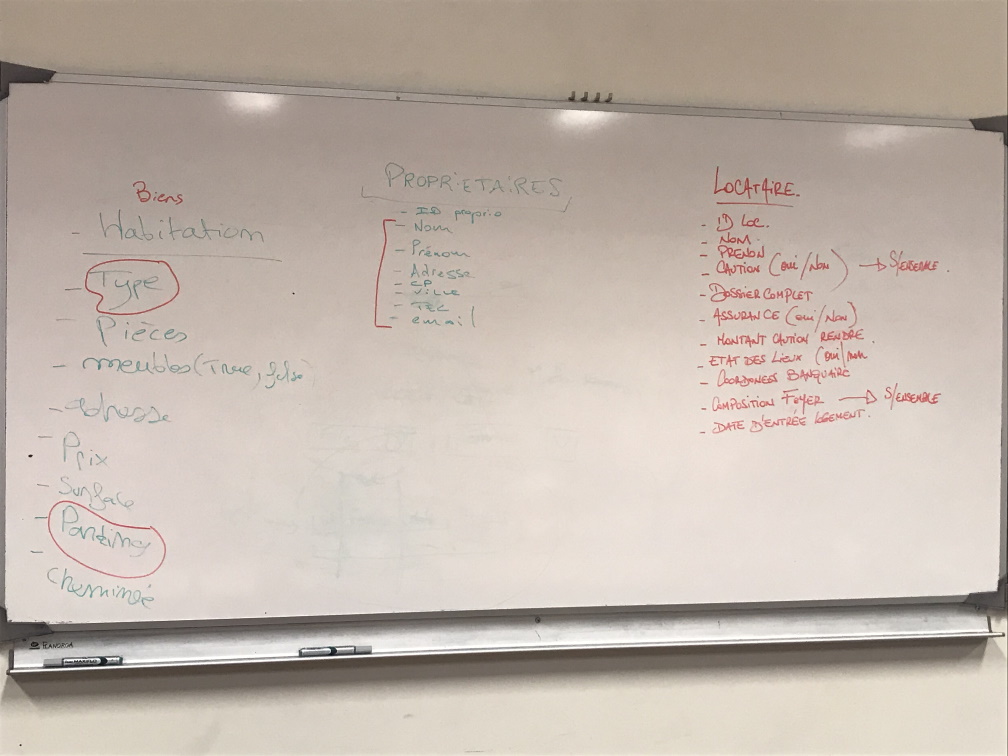 Biens
- Habitation
- Type
- Pièces
- meubles (True, false)
- Adresse
- Prix
- Surface
- Parking
-
Cheminée
PROPRIETAIRES
- ID proprio
- Nom
- Prénom
- Adresse
- CP
- VILLE
- TEL
- email
LOCATAIRE.
- ID Loc.
- NOM.
- PRENON
- CAUTION (oui/Non) → S/ENSEMBLE.
- DOSSIER COMPLET
- ASSURANCE (oui/Non)
- MONTANT CAUTION RENDRE.
- ETAT DES LIEUX (oui/non
- COORDONEES BANQUAIRE
- COMPOSITION FOYER → S/ENSEMBLE
- DATE D'ENTRÉE LOGEMENT.